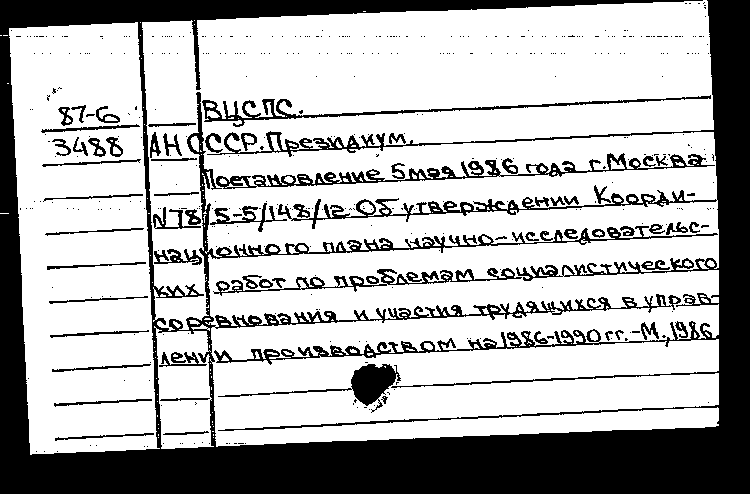 87-6 ВЦСПС.
3488 АН СССР. Президиум.
Постановление 5 мая 1986 года г. Москва
N 78/5-5/148/12 Об утверждении Коорди-
национного плана научно-исследовательс-
ких работ по проблемам социалистического
соревнования и участия трудящихся в управ-
лении производством на 1986-1990 гг. - М., 1986